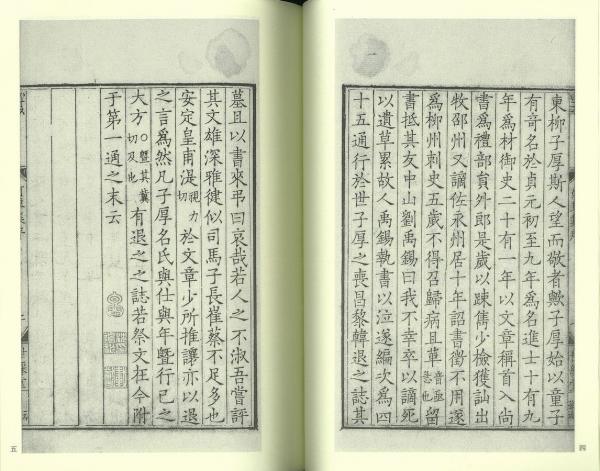 東柳子厚斯人望而敬者歟子厚始以童子
有奇名於貞元初至九年爲名進士十有九
年爲材御史二十有一年以文章稱首入尚
書爲禮部員外郎是歲以疎雋少檢獲訕出
牧邵州又謫佐永州居十年詔書徵不用遂
爲柳州刺史五歲不得召歸病且革音亟急也留
書抵其友中山劉禹錫曰我不幸卒以謫死
以遺草累故人禹錫執書以泣遂編次爲四
十五通行於世子厚之喪昌黎韓退之誌其
四
墓且以書來弔曰哀哉若人之不淑吾嘗評
其文雄深雅健似司馬子長崔蔡不足多也
安定皇甫湜視力切於文章少所推讓亦以退
之言爲然凡子厚名氏與仕與年曁行己之
大方○曁其冀切及也有退之之誌若祭文在今附
于第一通之末云
五